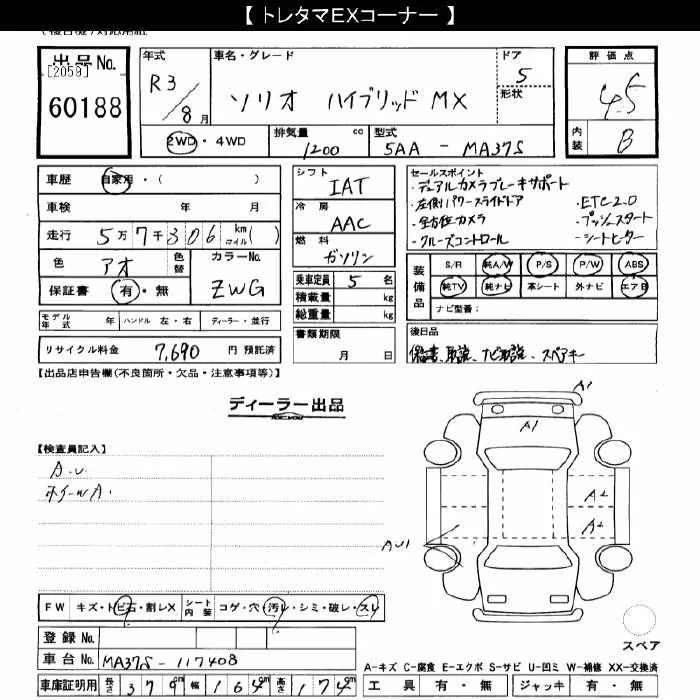 【 トレタマEXコーナー 】
出品No.
[2059]
60188
年式
R3/8月
車名・グレード
ソリオ ハイブリッド MX
ドア
5
形状
評価点
4.5
内装
B
2WD・4WD
排気量 cc
1200
型式
5AA - MA37S
車歴 自家用・( )
車検 年 月
走行 5万7千306 km マイル( )
色 アオ 色替
カラーNo.
ZWG
保証書 有・無
モデル年式 年 ハンドル 左・右 ディーラー・並行
リサイクル料金 7,690 円 預託済
シフト
IAT
冷房
AAC
燃料
ガソリン
乗車定員 5 名
積載量 kg
総重量 kg
書類期限
月 日
セールスポイント
・デュアルカメラブレーキサポート
・左側パワースライドドア ・ETC2.0
・全方位カメラ ・プッシュスタート
・クルーズコントロール ・シートヒーター
装備品
S/R 純A/W P/S P/W ABS
純TV 純ナビ 革シート 外ナビ エアB
ナビ型番:
後日品
保証書、取説、ナビ取説、スペアキー
【出品店申告欄(不良箇所・欠品・注意事項等)】
ディーラー出品
【検査員記入】
A.U.
ホイールA.
A1
A1
A2
A2
AU1
スペア
FW キズ・トビ石・割レX シート内装 コゲ・穴・汚レ・シミ・破レ・スレ
登録No.
車台No. MA37S-117408
車庫証明用 長さ 379cm 幅 164cm 高さ 174cm
A-キズ C-腐食 E-エクボ S-サビ U-凹ミ W-補修 XX-交換済
工具 有・無 ジャッキ 有・無